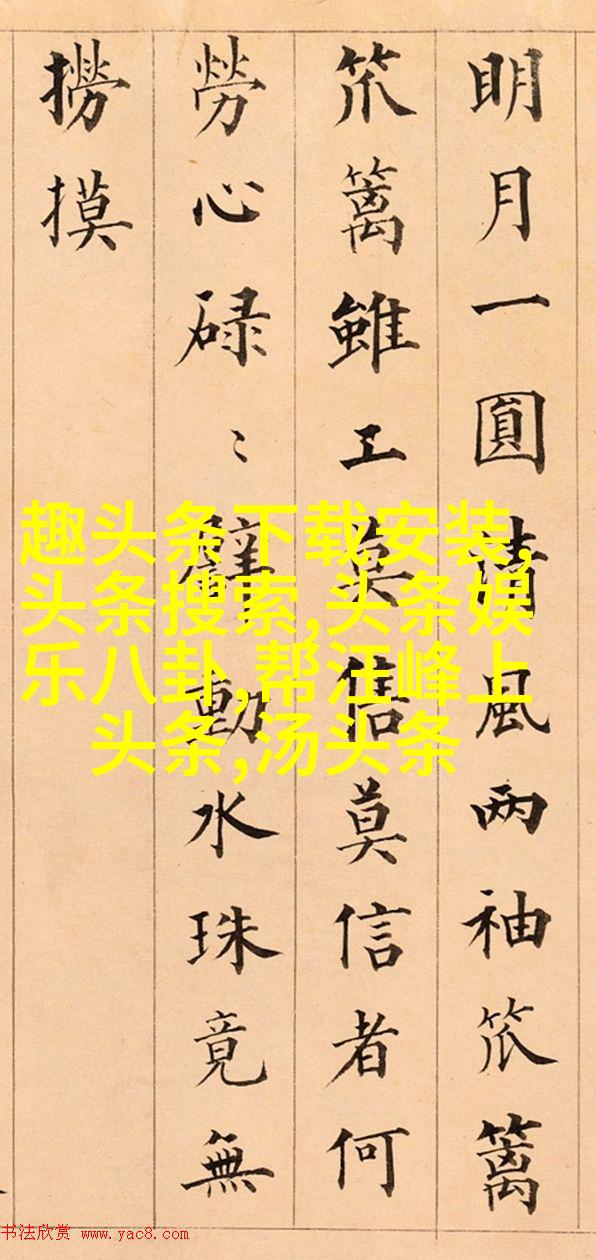 明月一圓清風两袖笊籬
笊籬雖工莫信莫信者何
勞心碌〻動水珠竟無
撈摸
趣头条下载安装,
头条搜索,头条娱
乐八卦,帮汪峰上
头条,汤头条
书法欣赏 www.yac8.com